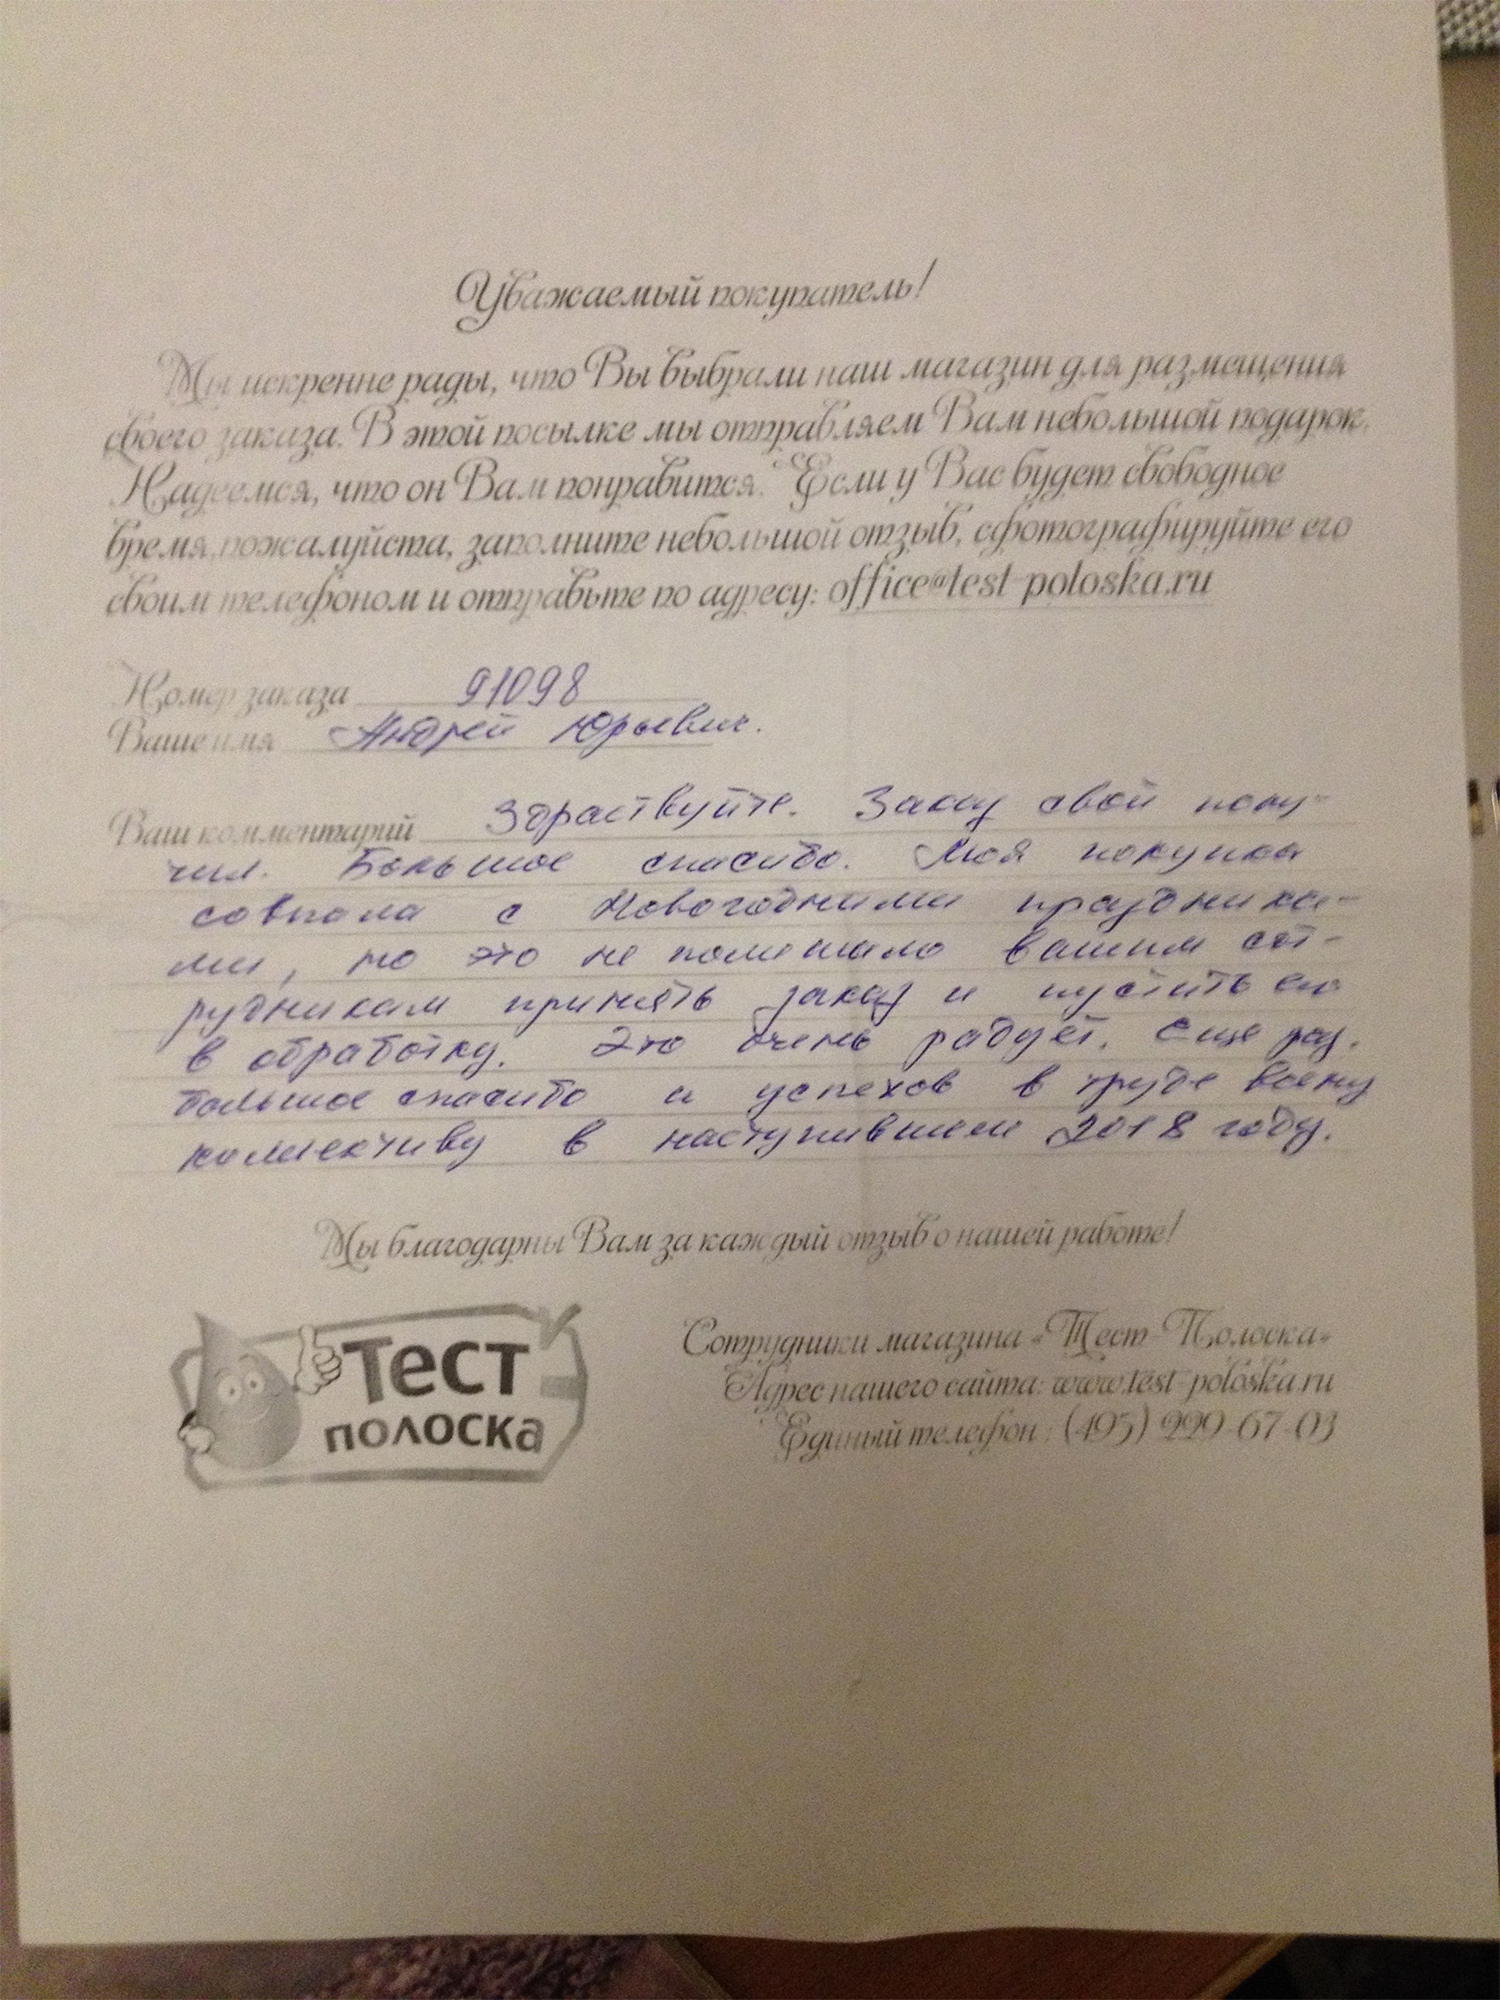 Уважаемый покупатель!
Мы искренне рады, что Вы выбрали наш магазин для размещения
своего заказа. В этой посылке мы отправляем Вам небольшой подарок.
Надеемся, что он Вам понравится. Если у Вас будет свободное
время, пожалуйста, заполните небольшой отзыв, сфотографируйте его
своим телефоном и отправьте по адресу: office@test-poloska.ru
Номер заказа 91098
Ваше имя Андрей Юрьевич.
Ваш комментарий Здраствуйте. Заказ свой полу-
чил. Большое спасибо. Моя покупка
совпала с Новогодними праздника-
ми, но это не помешало вашим сот-
рудникам принять заказ и пустить его
в обработку. Это очень радует. Еще раз.
большое спасибо и успехов в труде всему
коллективу в наступившем 2018 году.
Мы благодарны Вам за каждый отзыв о нашей работе!
Тест
полоска
Сотрудники магазина «Тест-Полоска»
Адрес нашего сайта: www.test-poloska.ru
Единый телефон : (495) 229-67-03